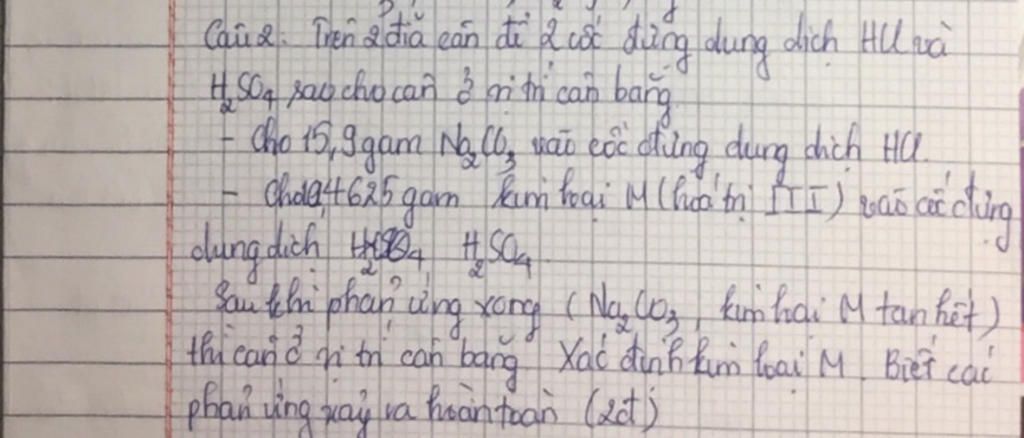 Câu 2. Trên 2 đĩa cân để 2 cốc đựng dung dịch HCl và
H₂SO₄ sao cho cân ở vị trí cân bằng
- Cho 15,9 gam Na₂CO₃ vào cốc đựng dung dịch HCl.
- Cho 9,4625 gam kim loại M (hoá trị III) vào cốc đựng
dung dịch H₂SO₄
Sau khi phản ứng xong (Na₂CO₃, kim loại M tan hết)
thì cân ở vị trí cân bằng Xác định kim loại M. Biết các
phản ứng xảy ra hoàn toàn (2đ)